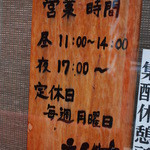 営業時間
昼 11:00~14:00
夜 17:00~
定休日
毎週月曜日
集配休